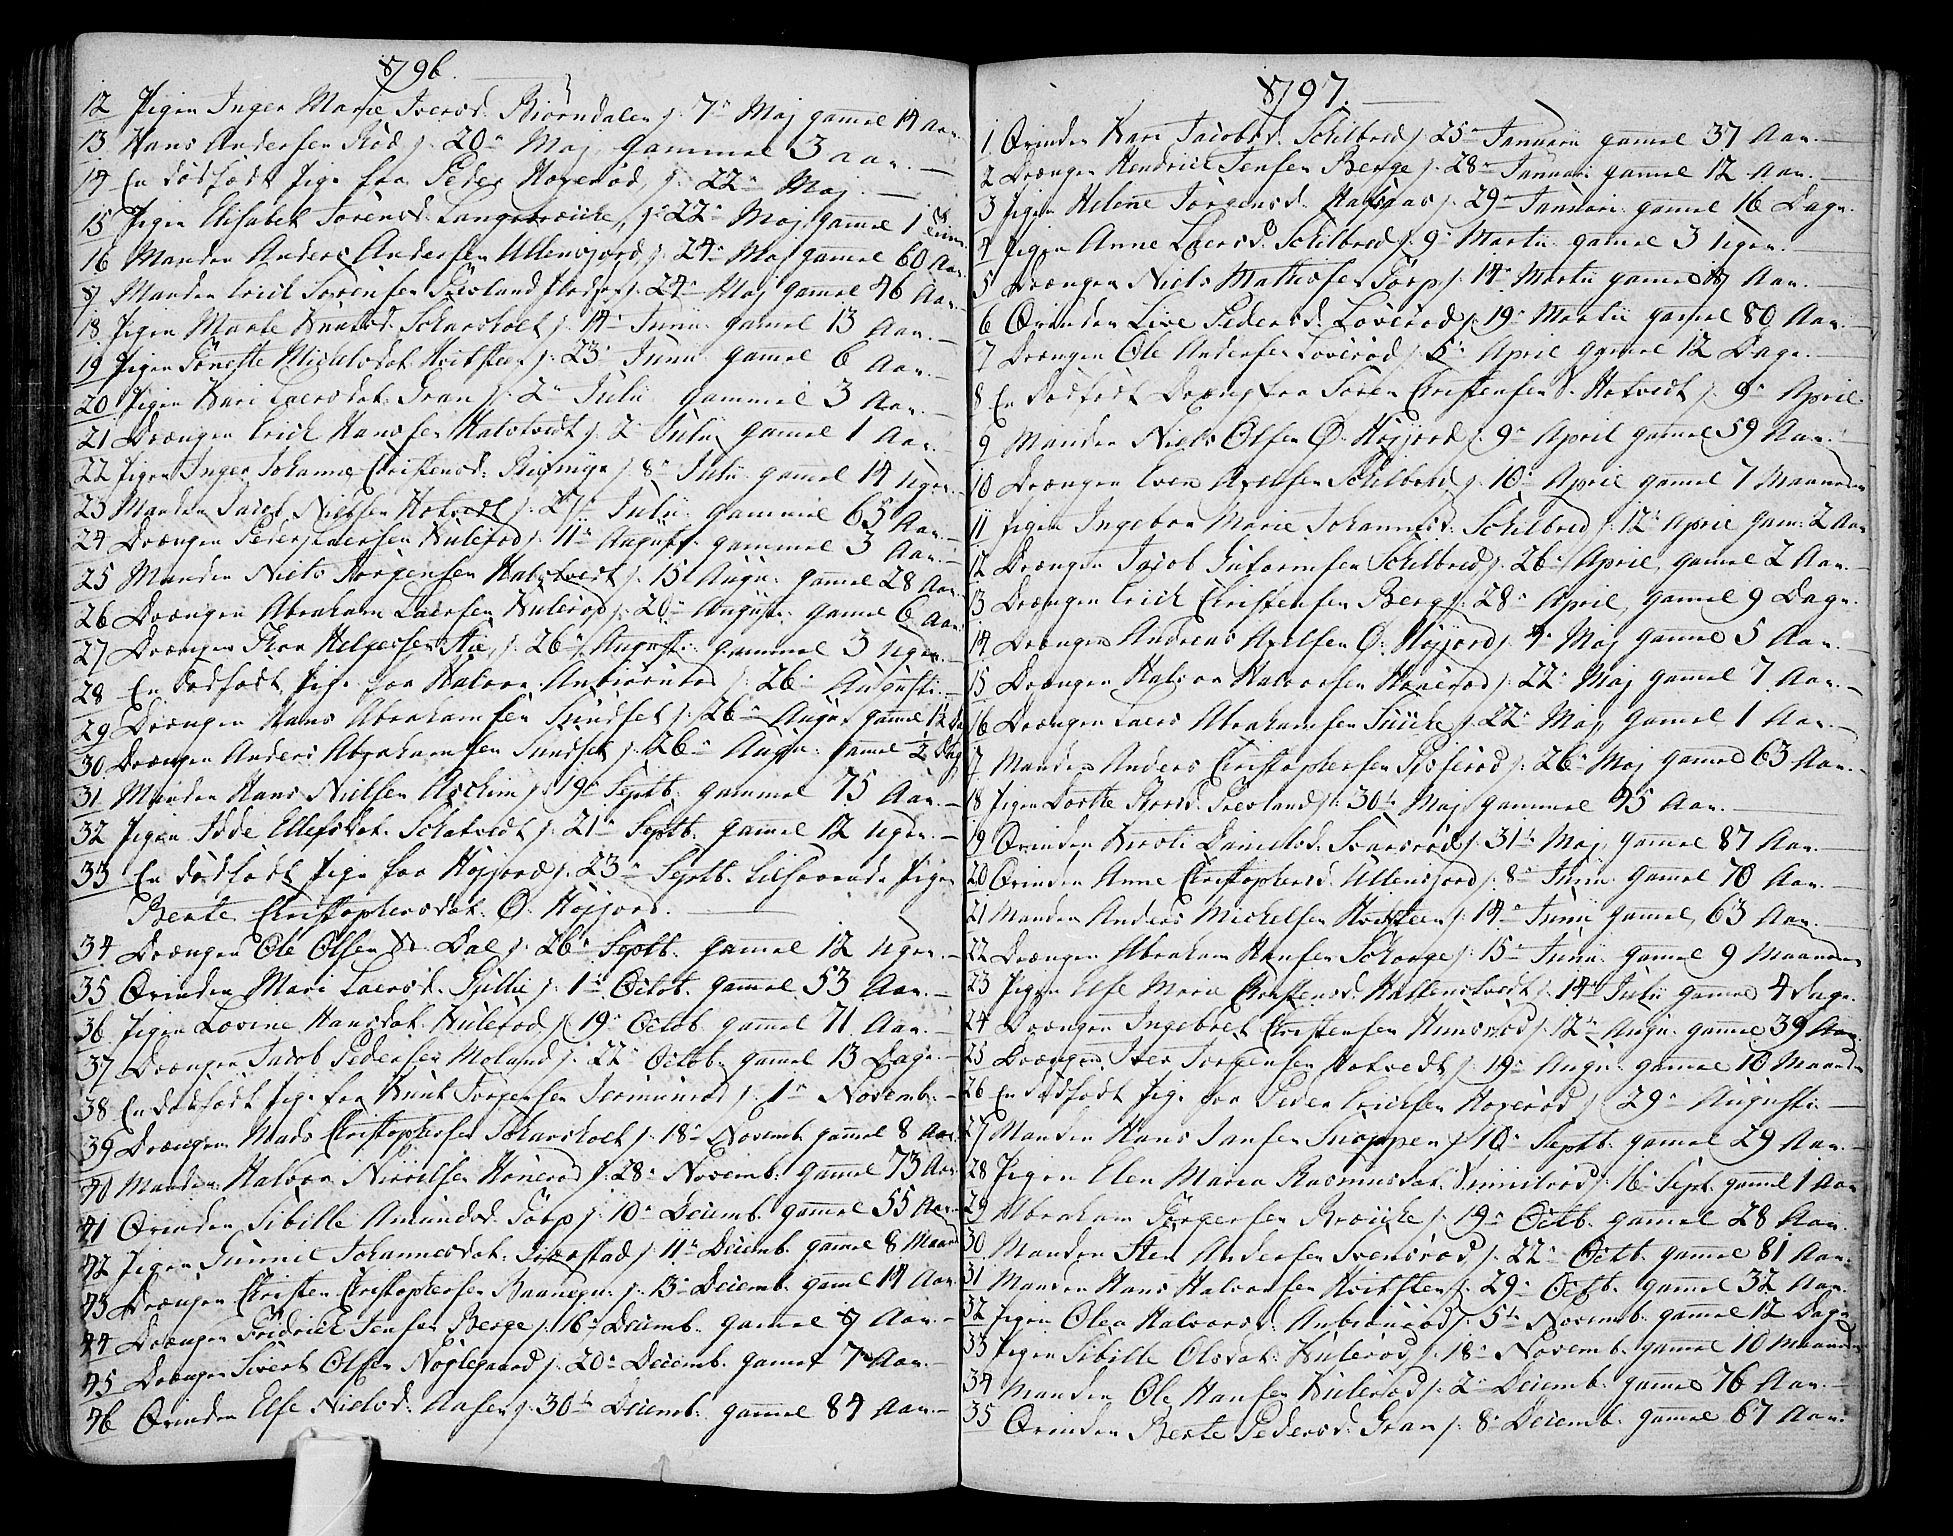 1796.
12 Pigen Inger Marie Iversd. Biørndalen /: 7de Maj gamel 14 Aar.
13 Hans Andersen Rød /: 20de Maj gammel 3 aar.
14 En dødfødt Pige fra Peder Hoxerød /: 22de Maj.
15 Pigen Elisabet Sørensd. /: 22de Maj gamel 1
16 Manden Anders Andersen Ullensjord /: 24de Maj gamel 60 Aar
17 Manden Erich Sørensen /: 24de Maj gamel 46 Aar
18 Pigen Marte Knudsd. Scharsholt /: 14de Junii gamel 13 Aar.
19 Pigen Michelsdat. Hvitsteen /: 23de Junii gamel 6 Aar.
20 Pigen Kari Laersdat. Gran /: 2de Julii gammel 3 Aar.
21 Drængen Erich Hansen Halstvedt /: 2de Julii gamel 1 Aar.
22 Pigen Inger Johanne Christensd. /: 8de Julii gamel 14 Uger.
23 Manden Jacob Nielsen Hotvedt /: 27de Julii gammel 65 Aar.
24 Drængen Peder Laersen Hulerød /: 11te Augusti gammel 3 Aar.
25 Manden Niels Jørgensen Halstvedt /: 15 Augu: gamel 28 Aar.
26 Drængen Abraham Laersen Hulerød /: 20de Augusti gamel 6 Aar
27 Drængen Thor Helgersen /: 26de Augusti gammel 3 Uger.
28 En dødfødt Pige fra Halvor Anbiørnrød /: 26de Augusti.
29 Drængen Hans Abrahamsen Sundset /: 26de Augu. gamel 1/2 Dag
30 Drængen Anders Abrahamsen Sundset /: 26de Augu: gamel 1/2 Dag
31 Manden Hans Nielsen Aschim /: 19de Septb. gammel 75 Aar.
32 Pigen Idde Ellefsdat. Schatvedt /: 21de Septb. gamel 12 Uger.
33 En dødfødt Pige fra Højjord /: 23de Septb. tilhørende Pigen
Berte Christophersdat. Ø. Højjord.
34 Drængen Ole Olsen N. Dal /: 26de Septb. gamel 12 Uger.
35 Qvinden Mari Laersd. Gjillie /: 1te Octob. gamel 53 Aar.
36 Pigen Lovine Hansdat. Hulerød /: 19de Octob. gamel 71 Aar.
37 Drængen Jacob Pedersen Moland /: 22de Octob. gamel 13 Dage.
38 En dødfødt Pige fra Knut Jørgensen Jermunrød /: 1te Novemb.
39 Drængen Mads Christophersen Scharsholt /: 18de Novemb. gamel 8 Aar
40 Manden Halvor Nirielsen Hønerød /: 28de Novemb. gamel 73 Aar.
41 Qvinden Sibille Amundsd. Torp /: 10de Decemb. gamel 55 Aar
42 Pigen Gunnil Johannesdat. /: 11te Decemb. gamel 8 Maan
43 Drængen Christen Christophersen /: 13de Decemb. gamel 14 Aar
44 Drængen Fridrich Jensen Berge /: 16de Decemb. gamel 17 Aar.
45 Drængen Sivert Olsen Nøglegaard /: 20de Decemb. gamel 7 Aar.
46 Qvinden Else Nielsd. Aasen /: 30te Decemb. gamel 84 Aar.
1797.
1 Qvinden Kari Jacobsd. Schilbred /: 25de Januarii gamel 37 Aar.
2 Drængen Hendrich Jensen Berge /: 28de Januarii gamel 12 Aar.
3 Pigen Helene Jørgensd. /: 29de Januarii gamel 16 Dage.
4 Pigen Anne Laersd. Schilbred /: 9de Martii gamel 3 Uger.
5 Drængen Niels Mathisen Torp /: 14de Martii gamel 17 Aar.
6 Qvinden Live Pedersd. Løverød /: 19de Martii gamel 80 Aar.
7 Drængen Ole Andersen Løverød /: 5te April gamel 12 Dage.
8 En Dødfødt Dræng fra Søren Christensen S. Hotvedt /: 9de April
9 Manden Niels Olsen Ø. Højjord /: 9de April gamel 59 Aar.
10 Drængen Even Axelsen Schilbred /: 10de April gamel 7 Maaneder
11 Pigen Ingebor Marie Johannesd. Schilbred /: 12te April gam: 2 Aar
12 Drængen Jacob Guttormsen Schilbred /: 26de April gamel 2 Aar.
13 Drængen Erich Christensen Berg /: 28de April, gamel 9 Dage.
14 Drængen Andreas Axelsen Ø. Højjord /: 4de Maj gamel 5 Aar.
15 Drængen Halvor Halvorsen Hønerød /: 22de Maj gamel 7 Aar.
16 Drængen Laers Abrahamsen /: 22de Maj gamel 1 Aar.
17 Manden Anders Christophersen /: 26de Maj gamel 63 Aar.
18 Pigen Dorthe /: 30te Maj gammel 45 Aar.
19 Qvinden Kirsti Danielsd. Svensrød /: 31te Maj gamel 87 Aar.
20 Qvinden Anne Christophersd. Ullensjord /: 8de Junii gamel 70 Aar.
21 Manden Anders Michelsen Hvitsteen /: 14de Junii gamel 63 Aar.
22 Drængen Abraham Hansen Schorge /: 15de Junii gamel 9 Maaneder
23 Pigen Else Marie Christensd. Halstenstvedt /: 14de Julii gamel 4 Dage.
24 Drængen Ingebret Christensen Hunsrød /: 12te Augu: gamel 39 Aar.
25 Drængen Iver Jørgensen Hotvedt /: 19de Augu: gamel 10 Maaneder
26 En Dødfødt Pige fra Peder Erichsen Hoxerød /: 29de Augusti
27 Manden Hans Jansen Snappen /: 10de Septb. gamel 29 Aar.
28 Pigen Elen Maria Rasmusdat. /: 16de Sept. gamel 1 Aar
29 Abraham Jørgensen /: 19de Octb. gamel 28 Aar.
30 Manden Sten Andersen Svensrød /: 22de Octb. gamel 81 Aar.
31 Manden Hans Halvorsen Hvitsten /: 29de Octb. gamel 32 Aar.
32 Pigen Olea Halvorsd. Anbiønrød /: 5te Novemb. gamel 12 Dage.
33 Pigen Sibille Olsdat. Hulerød /: 18de Novemb. gamel 10 Maaneder
34 Manden Ole Hansen Hulerød /: 2de Decemb. gamel 76 Aar.
35 Qvinden Berte Pedersd. Gran /: 8de Decemb. gamel 67 Aar.